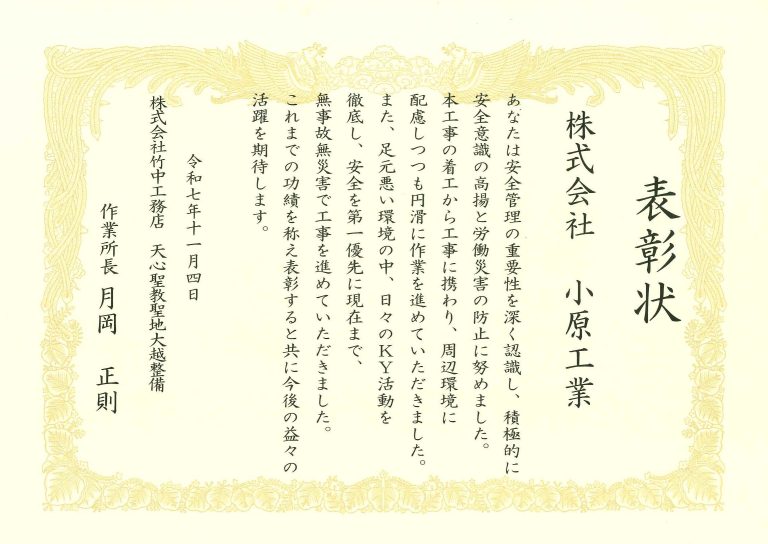 表彰状
株式会社　小原工業
あなたは安全管理の重要性を深く認識し、積極的に
安全意識の高揚と労働災害の防止に努めました。
本工事の着工から工事に携わり、周辺環境に
配慮しつつも円滑に作業を進めていただきました。
また、足元悪い環境の中、日々のＫＹ活動を
徹底し、安全を第一優先に現在まで、
無事故無災害で工事を進めていただきました。
これまでの功績を称え表彰すると共に今後の益々の
活躍を期待します。
令和七年十一月四日
株式会社竹中工務店　天心聖教聖地大越整備
作業所長　月岡　正則